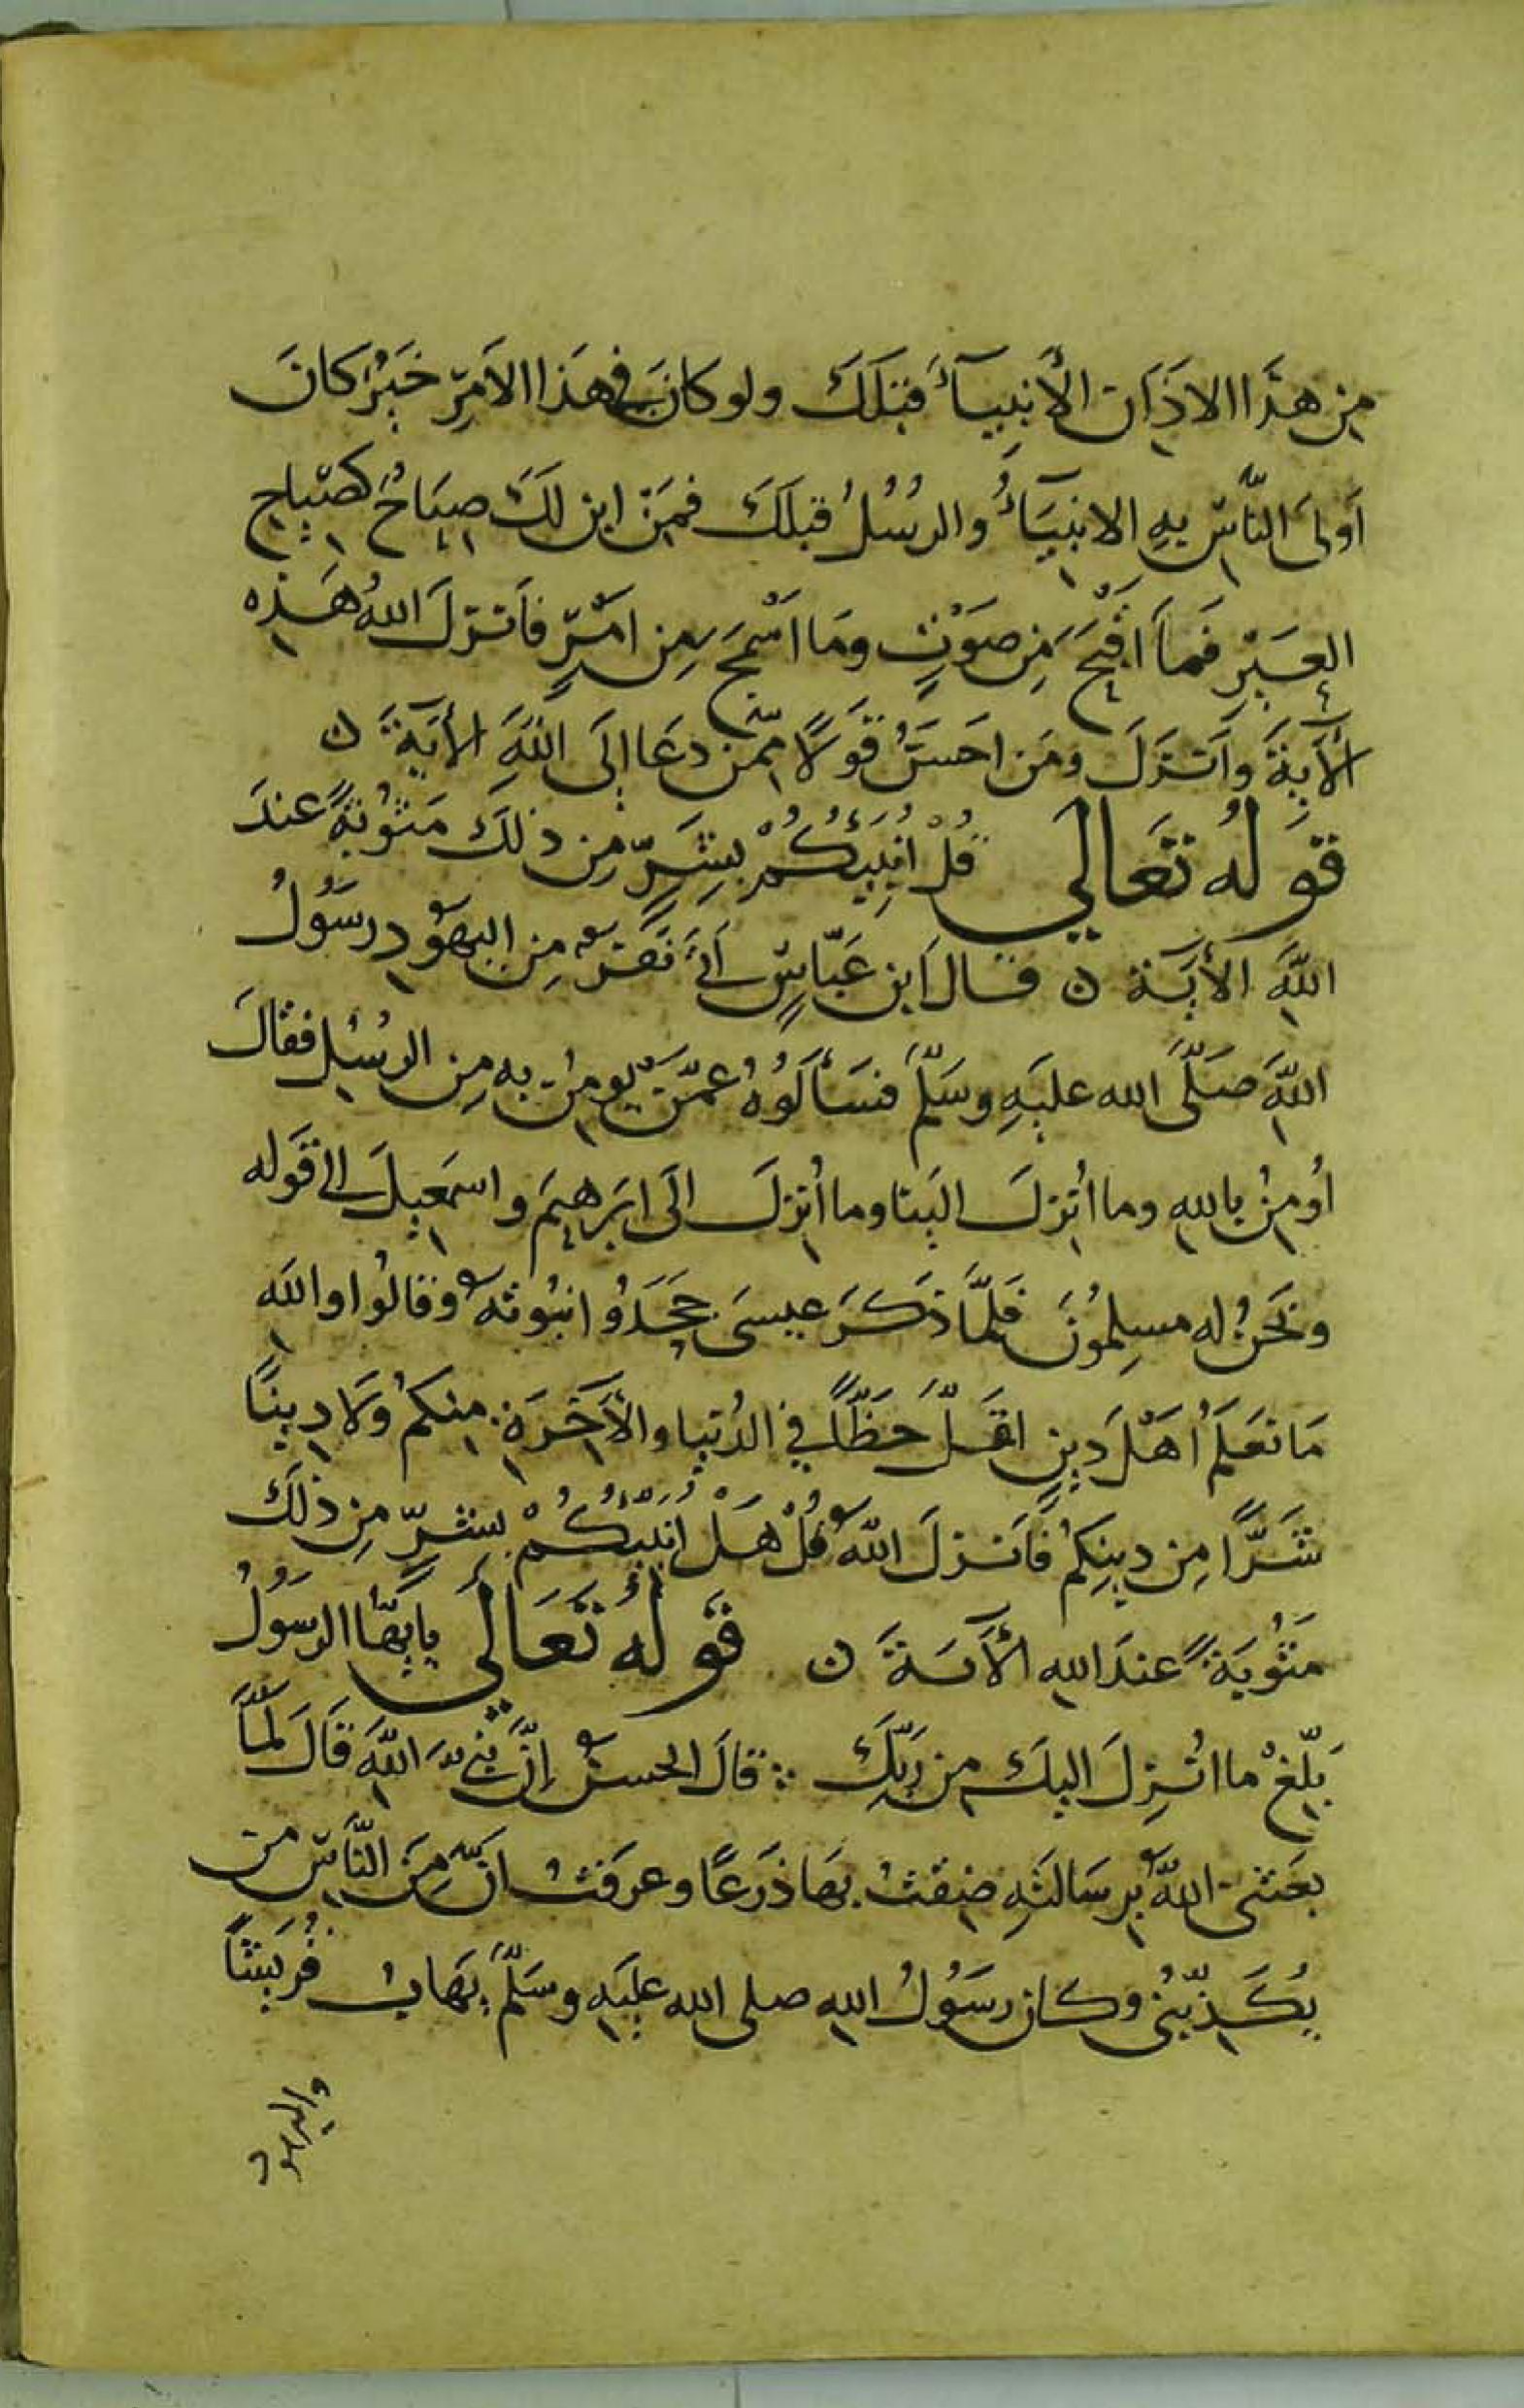 مِن هذَا الاذَان الأَنبِيآءَ قبَلكَ ولو كانَ في هذَا الامَرِ خَيرٌ كانَ
اَولىَ النّاسِ بِهِ الانبيَآءُ والرسُلُ قبلَكَ فمَن اين لَكَ صيَاحٌ كصِيَاحِ
العِيَرِ فَمآ اقبَحَ مِن صَوْتٍ ومَا اَسْمجَ مِن اَمْرٍ فاَنزلَ اللهُ هَذِه
الآيةَ وأَنزَلَ ومَن احَسَنُ قَولًا مِّمّن دعَا الَى اللهِ الأيةَ ن
قَولُه تَعَالَي قُلْ اُنبِّيُكُمْ بِشَرٍّ مِن ذلكَ مَثوُبةً عندَ
اللهِ الأيَة ن قال ابن عَبّاسٍ اَتَي نَفَرٌ مِن اليهُود رسَوُلُ
اللهِ صَلّى الله عليَهِ وسَلّمَ فسَألوُهُ عمّن يومِنُ به مِن الرسُلِ فقالَ
أُومِنُ بالله وما اُنزِلَ الينا وما اُنزِلَ الَى ابَرهيمَ واسمَعيلَ الى قَوله
ونَحنُ له مسلِمُونَ فَلمّا ذكَرَ عيسىَ جحَدَوُا نبُوتَهُ وقالُوا والله
مَا نَعلَمُ اَهْلَ دِينٍ اقَلَّ حَظّاً في الدُنيا والأَخِرَةِ منِكمُ وَلا دِينًا
شَرًّا مِن دينِكمُ فاَنزلَ اللهُ قُلْ هَلْ اُنَبِّئُكُمْ بِشَرٍّ مِن ذلَك
مَثُوبَةً عندَ الله الأيةَ ن قَولُهُ تَعَالَي يايهّا الرسَوُلُ
بَلّغْ ما اُنزِلَ اليكَ مِن رَبّكَ ∴ قالَ الحسنُ إنّ نبيَّ اللهِ قَالَ لَمّا
بعَثنى اللهُ بِرسَالتِهِ ضِقتُ بهَا ذَرعًا وعرَفتُ انّ مِنَ النّاسِ من
يُكَذّبنُى وكان رسَوُلُ اللهِ صلى الله عليَهِ وسَلّمَ يهَابُ قُريشًا
واليهود